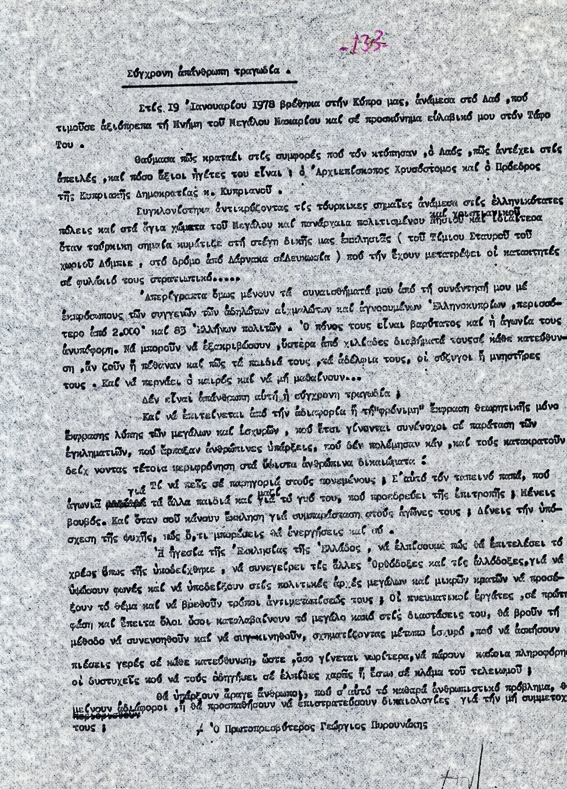 -133-
Σύγχρονη ἀπάνθρωπη τραγωδία .
Στίς 19 Ἰανουαρίου 1978 βρέθηκα στήν Κύπρο μας, ἀνάμεσα στό Λαό ,πού
τιμοῦσε ἀξιόπρεπα τή Μνήμη τοῦ Μεγάλου Μακαρίου καί σέ προσκύνημα εὐλαβικό μου στόν Τάφο
Του .
Θαύμασα πῶς κραταῖ στίς συμφορές πού τόν κτύπησαν ,ὁ Λαός ,πῶς ἀντέχει στίς
ἀπειλές ,καί πόσο ἄξιοι ἡγέτες του εἶναι ; ὁ Ἀρχιεπίσκοπος Χρυσόστομος καί ὁ Πρόεδρος
τῆς Κυπριακῆς Δημοκρατίας κ. Κυπριανοῦ .
Συγκλονίστηκα ἀντικρύζοντας τίς τούρκικες σημαῖες ἀνάμεσα στίς ἑλληνικότατες
πόλεις καί στά ἅγια χώματα τοῦ Μεγάλου καί πανάρχαια πολιτισμένου καί χριστιανικοῦ Νησιοῦ καί ἰδιαίτερα
ὅταν τούρκικη σημαία κυμάτιζε στή στέγη δικῆς μας ἐκκλησίας ( τοῦ Τίμιου Σταυροῦ τοῦ
χωριοῦ , στό δρόμο ἀπό Λάρνακα σέ Λευκωσία ) πού τήν ἔχουν μετατρέψει οἱ κατακτητές
σέ φυλάκιό τους στρατιωτικό.....
Ἀπερίγραπτα ὅμως μένουν τά συναισθήματά μου ἀπό τή συνάντησή μου μέ
ἐκπρόσωπους τῶν συγγενῶν τῶν ἀδήλων αἰχμαλώτων καί ἀγνοουμένων Ἑλληνοκυπρίων ,περισσό-
τερο ἀπό 2.000 καί 83 Ἑλλήνων πολιτῶν . Ὁ πόνος τους εἶναι βαρύτατος καί ἡ ἀγωνία τους
ἀνυπόφορη. Νά μποροῦν νά ἐξακριβώσουν ,ὕστερα ἀπό χιλιάδες διαβήματά τους σέ κάθε κατεύθυν-
ση ,ἄν ζοῦν ἤ πέθαναν καί πῶς τά παιδιά τους ,τά ἀδέλφια τους, οἱ σύζυγοι ἤ μνηστῆρες
τους . Καί νά περνάει ὁ καιρός καί νά μή μαθαίνουν...
Δέν εἶναι ἀπάνθρωπη αὐτή ἡ σύγχρονη τραγωδία ;
Καί νά ἐπιτείνεται ἀπό τήν ἀδιαφορία ἤ τή "φρόνιμη" ἔκφραση θεωρητικῆς μόνο
ἔκφρασης λύπης τῶν μεγάλων καί ἰσχυρῶν , πού ἔτσι γίνονται συνένοχοι σέ παράταση τῶν
ἐγκλημάτων, πού ἅρπαξαν ἀνθρώπινες ὑπάρξεις, πού δέν πολέμησαν κἄν ,καί τούς κατακρατοῦν
δείχνοντας τέτοια περιφρόνηση στά ὕψιστα ἀνθρώπινα δικαιώματα !
Τί νά πεῖς σέ παρηγοριά στούς πονεμένους ; Σ'αὐτό τόν ταπεινό παπά, πού
ἀγωνιᾶ γιά τά ἄλλα παιδιά καί μαζί γιά τό γυό του, πού προεδρεύει τῆς ἐπιτροπῆς ; Μένεις
βουβός. Καί ὅταν σοῦ κάνουν ἔκκληση γιά συμπαράσταση στούς ἀγῶνες τους ; Δίνεις τήν ὑπό-
σχεση τῆς ψυχῆς, πώς ὅ,τι μπορέσεις θά ἐνεργήσεις καί σύ .
Ἡ ἡγεσία τῆς Ἐκκλησίας τῆς Ἑλλάδος , νά ἐλπίσουμε πώς θά ἐπιτελέσει τό
χρέος ὅπως τῆς ὑποδείχθηκε , νά συνεγείρει τίς ἄλλες Ὀρθόδοξες καί τίς ἀλλόδοξες,γιά νά
ὑψώσουν φωνές καί νά ὑποδείξουν στίς πολιτικές ἀρχές μεγάλων καί μικρῶν κρατῶν νά προσέ-
ξουν τό θέμα καί νά βρεθοῦν τρόποι ἀντιμετωπίσεώς τους ; Οἱ πνευματικοί ἐργάτες ,σέ πρώτη
φάση καί ἔπειτα ὅλοι ὅσοι καταλαβαίνουν τό μεγάλο κακό στίς διαστάσεις του, θά βροῦν τή
μέθοδο νά συνενοηθοῦν καί νά συγκινηθοῦν, σχηματίζοντας μέτωπο ἰσχυρό ,πού νά ἀσκήσουν
πιέσεις γερές σέ κάθε κατεύθυνση, ὥστε ,ὅσο γίνεται νωρίτερα,νά πάρουν κάποια πληροφόρηση
οἱ δυστυχεῖς πού νά τούς ὁδηγήσει σέ ἐλπίδες χαρᾶς ἤ ἔστω σέ κλάμα τοῦ τελειωμοῦ ;
Θά ὑπάρξουν ἄραγε ἄνθρωποι, πού σ'αὐτό τό καθαρά ἀνθρωπιστικό πρόβλημα, θά
μείνουν ἀδιάφοροι ,ἤ θά προσπαθήσουν νά ἐπιστρατεύσουν δικαιολογίες γιά τήν μή συμμετοχή
τους ;
Ὁ Πρωτοπρεσβύτερος Γεώργιος Πυρουνάκης